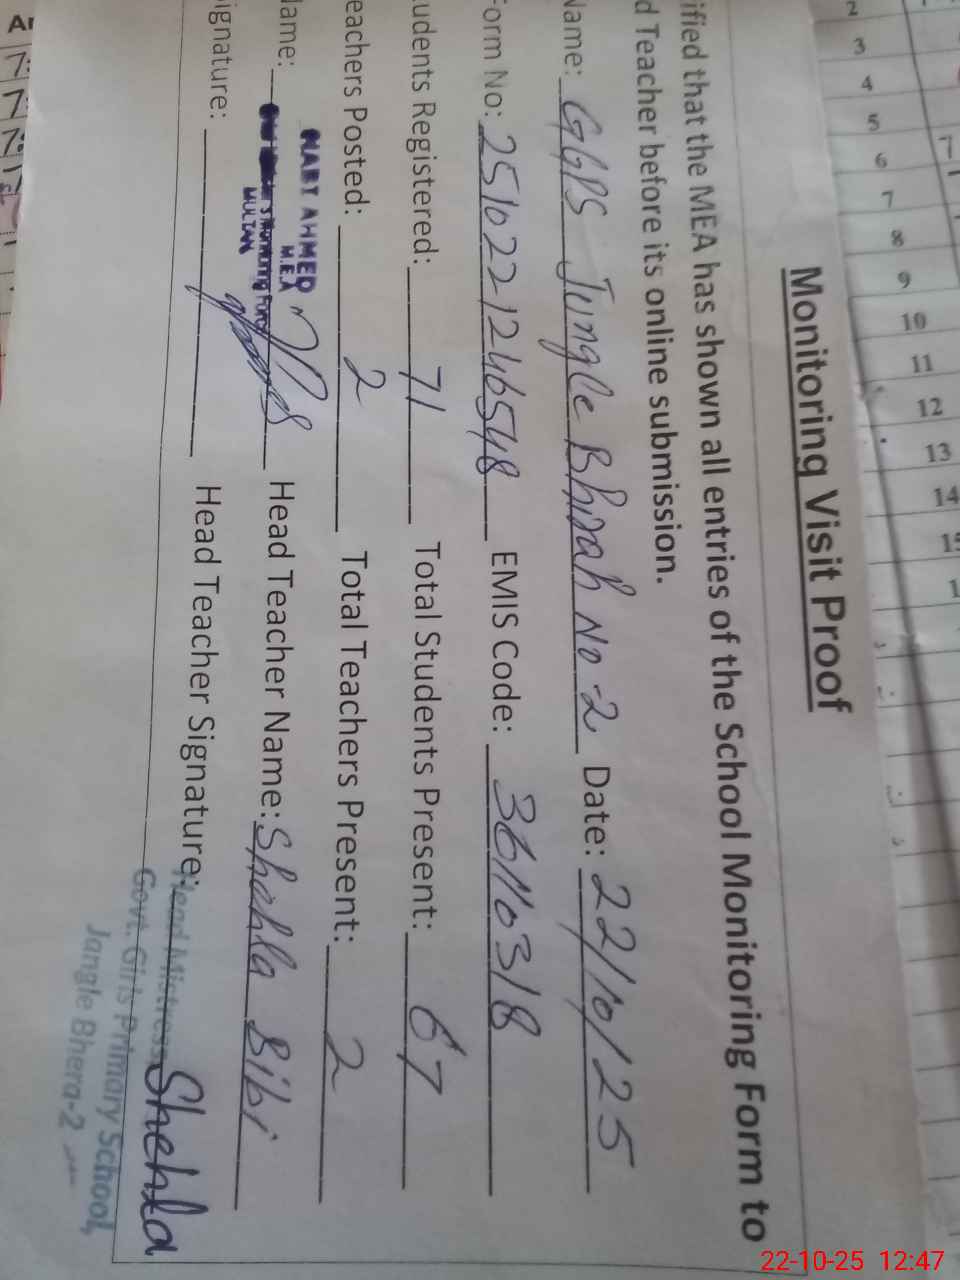 Monitoring Visit Proof
ified that the MEA has shown all entries of the School Monitoring Form to
d Teacher before its online submission.
Name: GGPS Jungle Bhirah No-2 Date: 22/10/25
Form No: 2510221246548 EMIS Code: 36110318
udents Registered: 71 Total Students Present: 67
eachers Posted: 2 Total Teachers Present: 2
Name: Head Teacher Name: Shehla Bibi
AHMED
M.E.A
MULTAN
ignature: Head Teacher Signature: Shehla
Head Mistress
Govt. Girls Primary School,
Jangle Bhera-2
2
3
4
5
6
7
8
9
10
11
12
13
14
22-10-25 12:47